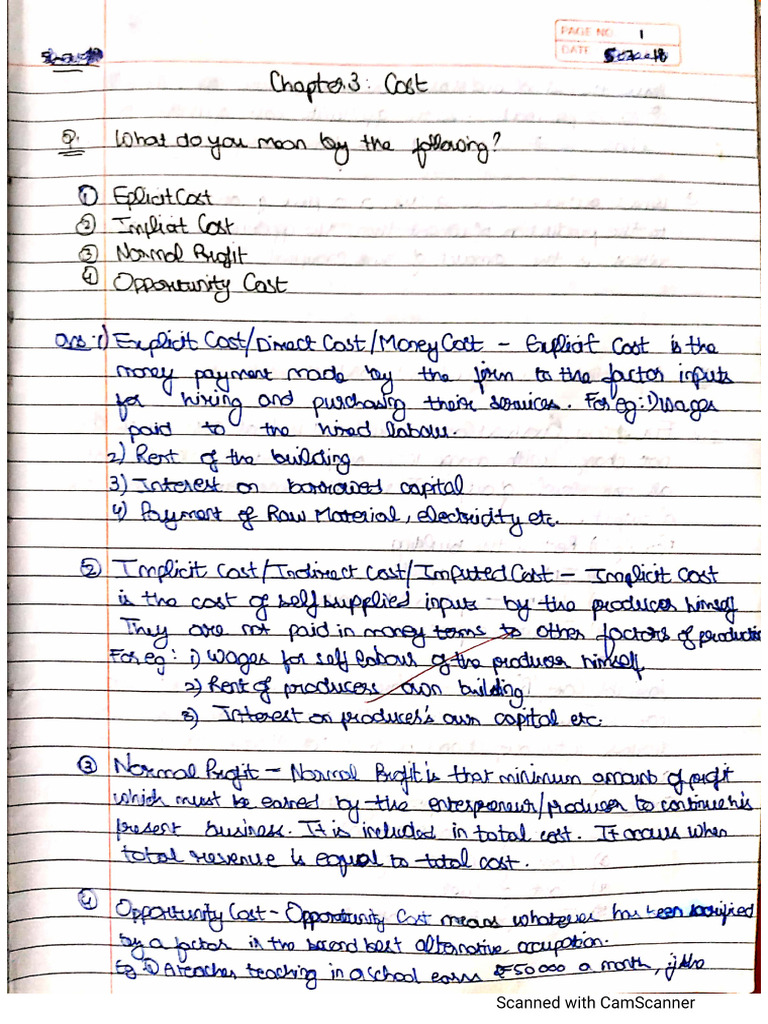 PAGE NO. 1
DATE
Chapter.3: Cost
Q. What do you mean by the following?
① Eplicit Cost
② Implicit Cost
③ Normal Profit
④ Opportunity Cost
Ans:1) Explicit Cost/Direct Cost/Money Cost - Explicit Cost is the
money payment made by the firm to the factor inputs
for hiring and purchasing their services. For eg: 1) wages
paid to the hired labour.
2) Rent of the building
3) Interest on borrowed capital
4) Payment of Raw Material, electricity etc.
② Implicit Cost/Indirect Cost/Imputed Cost - Implicit Cost
is the cost of self supplied inputs by the producer himself
They are not paid in money terms to other factors of production
For eg: 1) Wages for self labour of the producer himself
2) Rent of producers own building
3) Interest on producer's own capital etc.
③ Normal Profit - Normal Profit is that minimum amount of profit
which must be earned by the enterpreneur/producer to continue his
present business. It is included in total cost. It occurs when
total revenue is equal to total cost.
④ Opportunity Cost - Opportunity Cost means whatever has been sacrificed
by a factor in the second best alternative occupation.
Eg 1) A teacher teaching in a school earns ₹50000 a month, if
Scanned with CamScanner